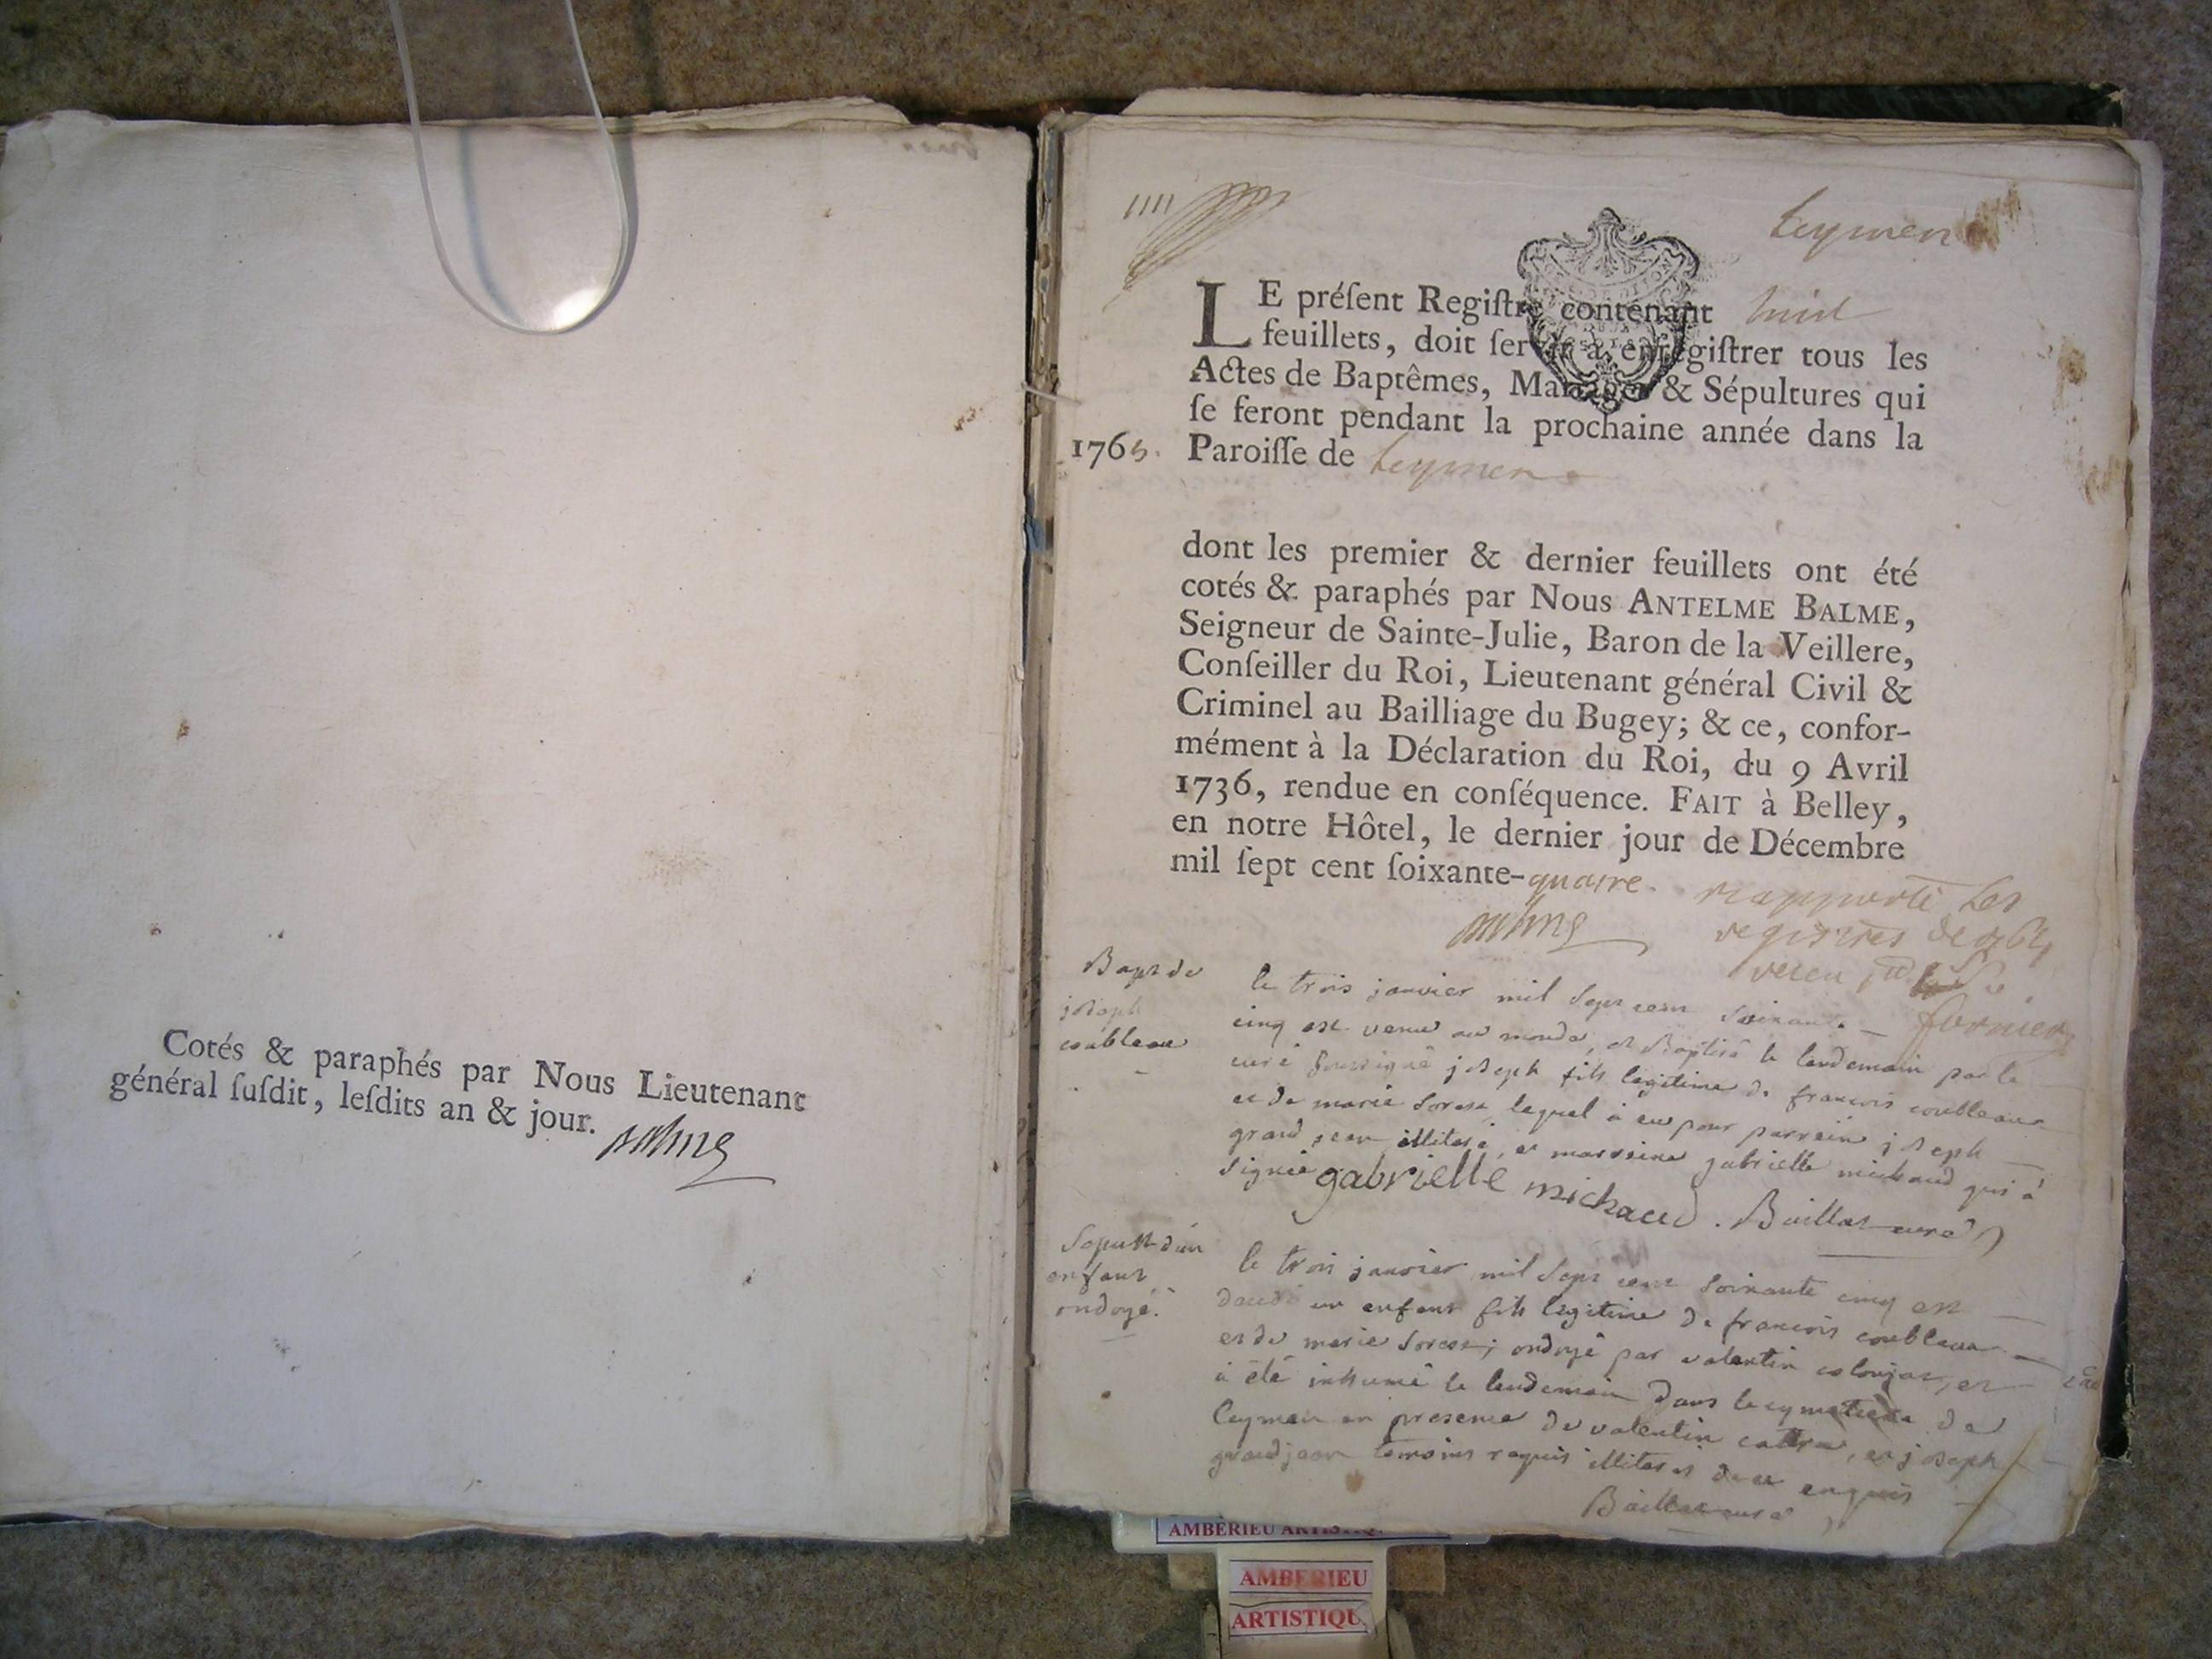 Cotés & paraphés par Nous Lieutenant
général ſuſdit, leſdits an & jour.
Leymen
LE préſent Regiſtre contenant huit
feuillets, doit ſervir à enregiſtrer tous les
Actes de Baptêmes, Mariages & Sépultures qui
ſe feront pendant la prochaine année dans la
1765. Paroiſſe de Leymen
dont les premier & dernier feuillets ont été
cotés & paraphés par Nous ANTELME BALME,
Seigneur de Sainte-Julie, Baron de la Veillere,
Conſeiller du Roi, Lieutenant général Civil &
Criminel au Bailliage du Bugey; & ce, confor-
mément à la Déclaration du Roi, du 9 Avril
1736, rendue en conſéquence. FAIT à Belley,
en notre Hôtel, le dernier jour de Décembre
mil ſept cent ſoixante-quatre.
balme
rapporté les
registres de 1764
Bapt de
joseph
coubleaux
le trois janvier mil sept cent soixante
cinq est venu au monde, et Baptisé le lendemain par le
curé soussigné joseph fils legitime de francois coubleaux
et de marie soress, lequel à eu pour parrein joseph
grand jean illiteré, et marreine gabrielle michaud qui à
signée gabrielle michaud. Baillat curé
Sepult d'un
enfant
ondoyé.
le trois janvier mil sept cent soixante cinq est
décédé un enfant fils legitime de francois coubleaux
et de marie soress; ondoyé par valentin, et
à été inhumé le lendemain dans le cymetiere de
Leymen en presence de valentin, et joseph
grandjean temoins requis illiterés de ce enquis
Baillat curé
AMBERIEU ARTISTIQ
AMBERIEU
ARTISTIQU